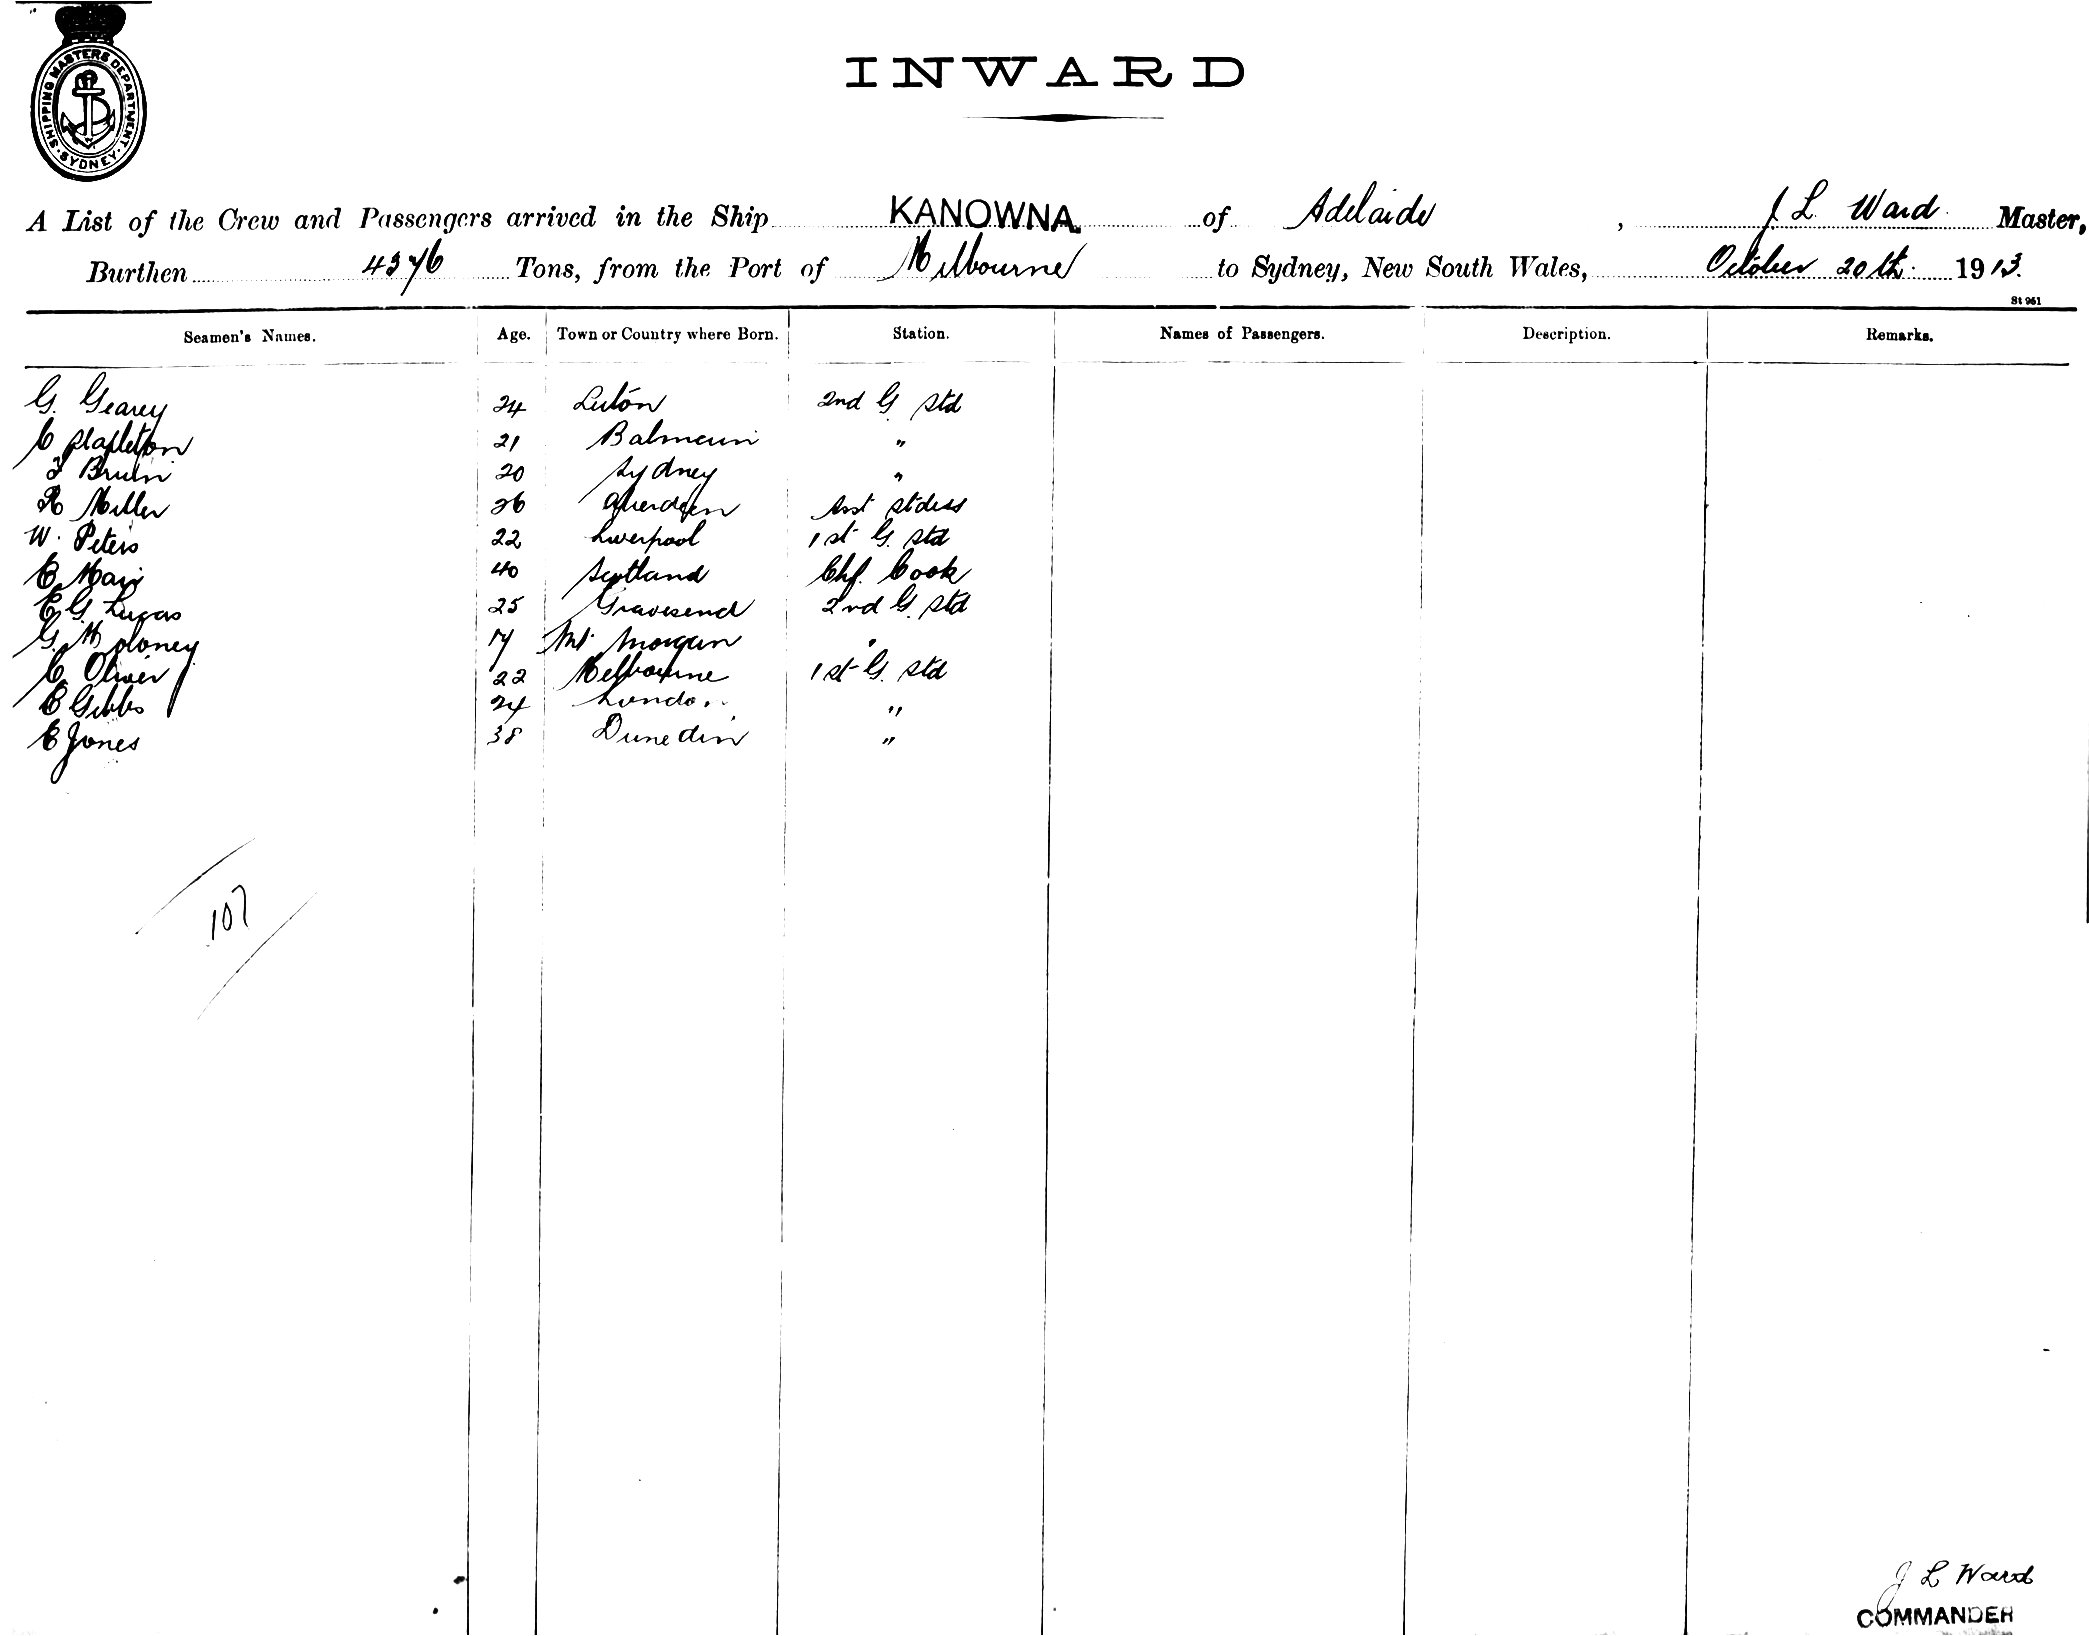 SHIPPING MASTERS DEPARTMENT
SYDNEY
INWARD
A List of the Crew and Passengers arrived in the Ship KANOWNA. of Adelaide, J. L. Ward. Master,
Burthen 4376 Tons, from the Port of Melbourne to Sydney, New South Wales, October 20th. 1913.
St 961
Seamen's Names. Age. Town or Country where Born. Station. Names of Passengers. Description. Remarks.
G. Gearey 24 Luton 2nd G. Std
C Stapleton 21 Balmain "
Bruin 20 Sydney "
R Miller 26 Aberdeen Asst Stdess
W. Peters 22 Liverpool 1st G. Std
Mair 40 Scotland Chf. Cook
E G. Lucas 25 Gravesend 2nd G. Std
G. Moloney 17 Mt Morgan "
C Oliver 22 Melbourne 1st G. Std
Gibbs 24 London "
E Jones 38 Dunedin "
107
J L Ward
COMMANDER